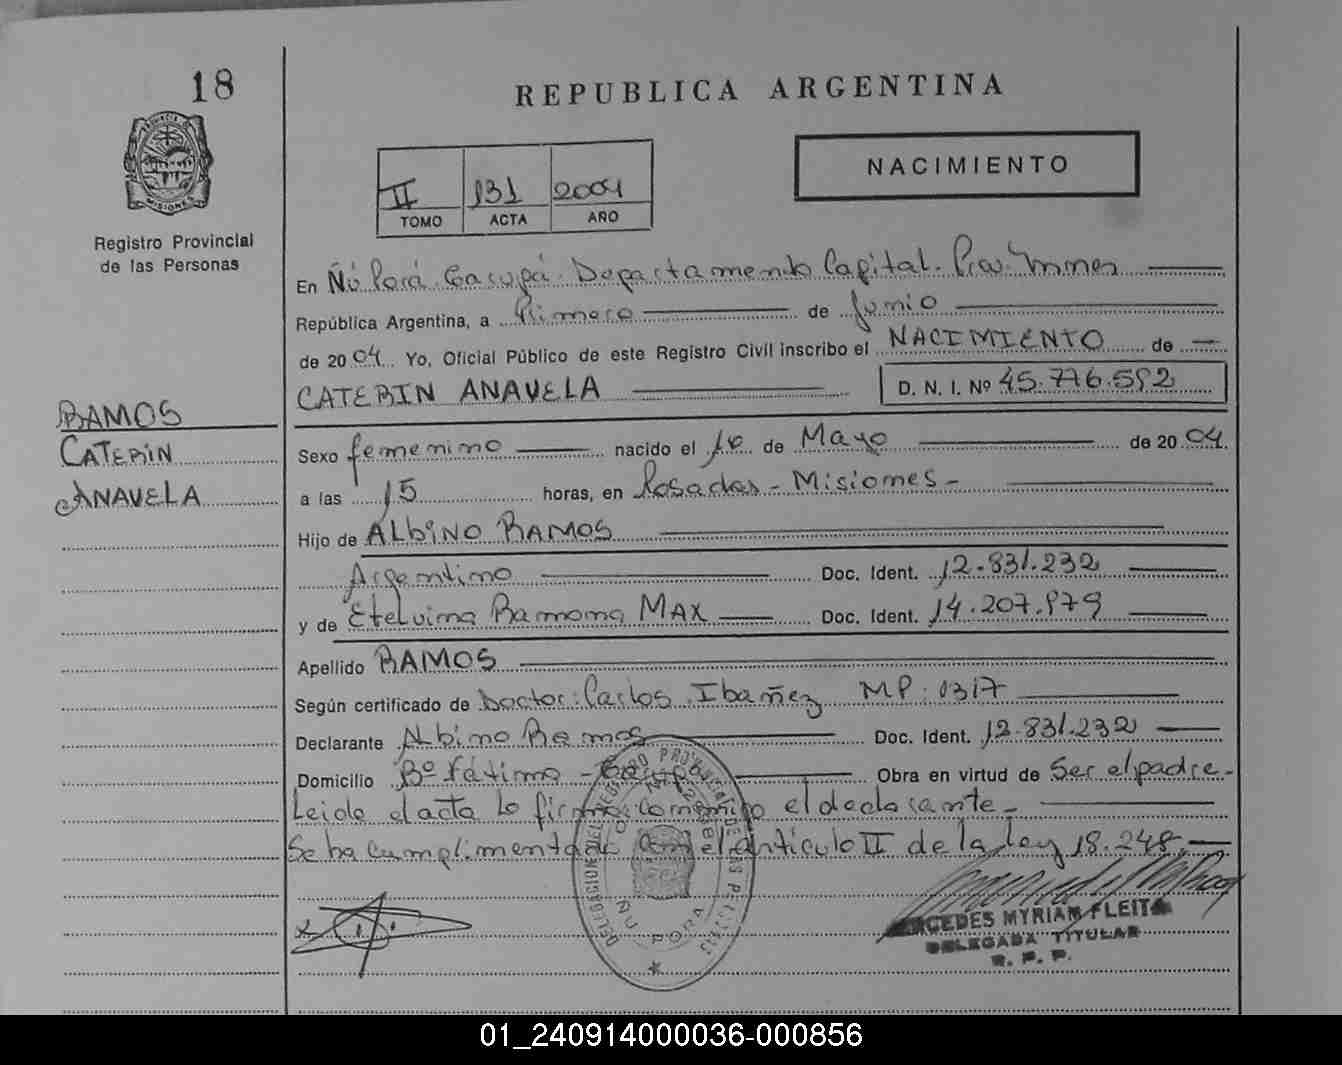 18
REPUBLICA ARGENTINA
PROVINCIA DE
MISIONES
Registro Provincial
de las Personas
II 131 2004
TOMO ACTA AÑO
NACIMIENTO
En Ñú Porá. Garupá. Departamento Capital.
República Argentina, a Primero de Junio
de 2004. Yo, Oficial Público de este Registro Civil inscribo el NACIMIENTO de
CATERIN ANAVELA D. N. I. Nº 45.776.592
RAMOS
CATERIN
ANAVELA
Sexo femenino nacido el 16 de Mayo de 2004.
a las 15 horas, en Posadas - Misiones -
Hijo de ALBINO RAMOS
Argentino Doc. Ident. 12.831.232
y de Etelvina Ramona MAX Doc. Ident. 14.207.979
Apellido RAMOS
Según certificado de Doctor: Carlos Ibañez MP: 0317
Declarante Albino Ramos Doc. Ident. 12.831.232
Domicilio Bº Fátima - Garupá Obra en virtud de Ser el padre -
Leido el acta lo firma conmigo el declarante -
Se ha cumplimentado con el artículo II de la ley 18.248.
DELEGACION DEL REGISTRO PROVINCIAL DE LAS PERSONAS
ÑU PORA
MERCEDES MYRIAM FLEITA
DELEGADA TITULAR
R. P. P.
01_240914000036-000856